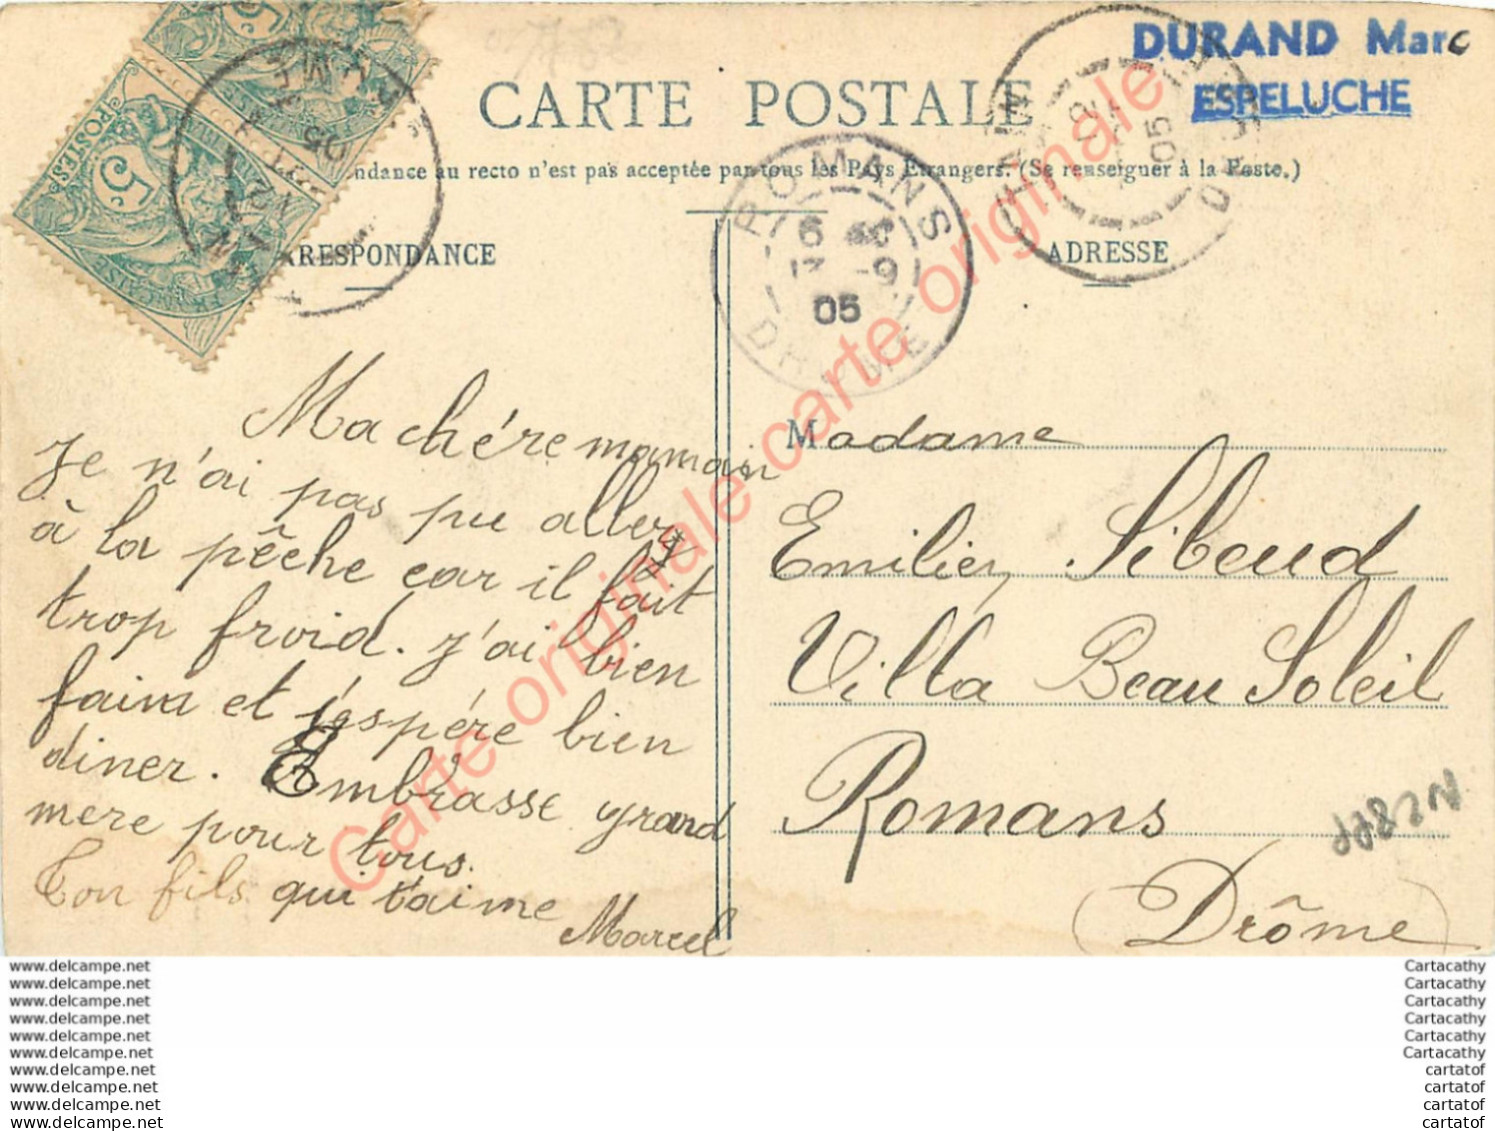 DURAND Marc
ESPELUCHE
CARTE POSTALE
ndance au recto n'est pas acceptée par tous les Pays Etrangers. (Se renseigner à la Poste.)
RESPONDANCE
ADRESSE
ROMANS
05
DROME
5
POSTES
5
Ma chére maman
Je n'ai pas pu aller
à la pêche car il fait
trop froid. J'ai bien
faim et j'éspére bien
diner. Embrasse grand
mere pour tous.
Ton fils qui t'aime
Marcel
Madame
Emilien Sibeud
Villa Beau Soleil
Romans
(Drôme)
Carte originale carte originale carte originale
www.delcampe.net
www.delcampe.net
www.delcampe.net
www.delcampe.net
www.delcampe.net
www.delcampe.net
www.delcampe.net
www.delcampe.net
www.delcampe.net
www.delcampe.net
Cartacathy
Cartacathy
Cartacathy
Cartacathy
Cartacathy
Cartacathy
cartatof
cartatof
cartatof
cartatof